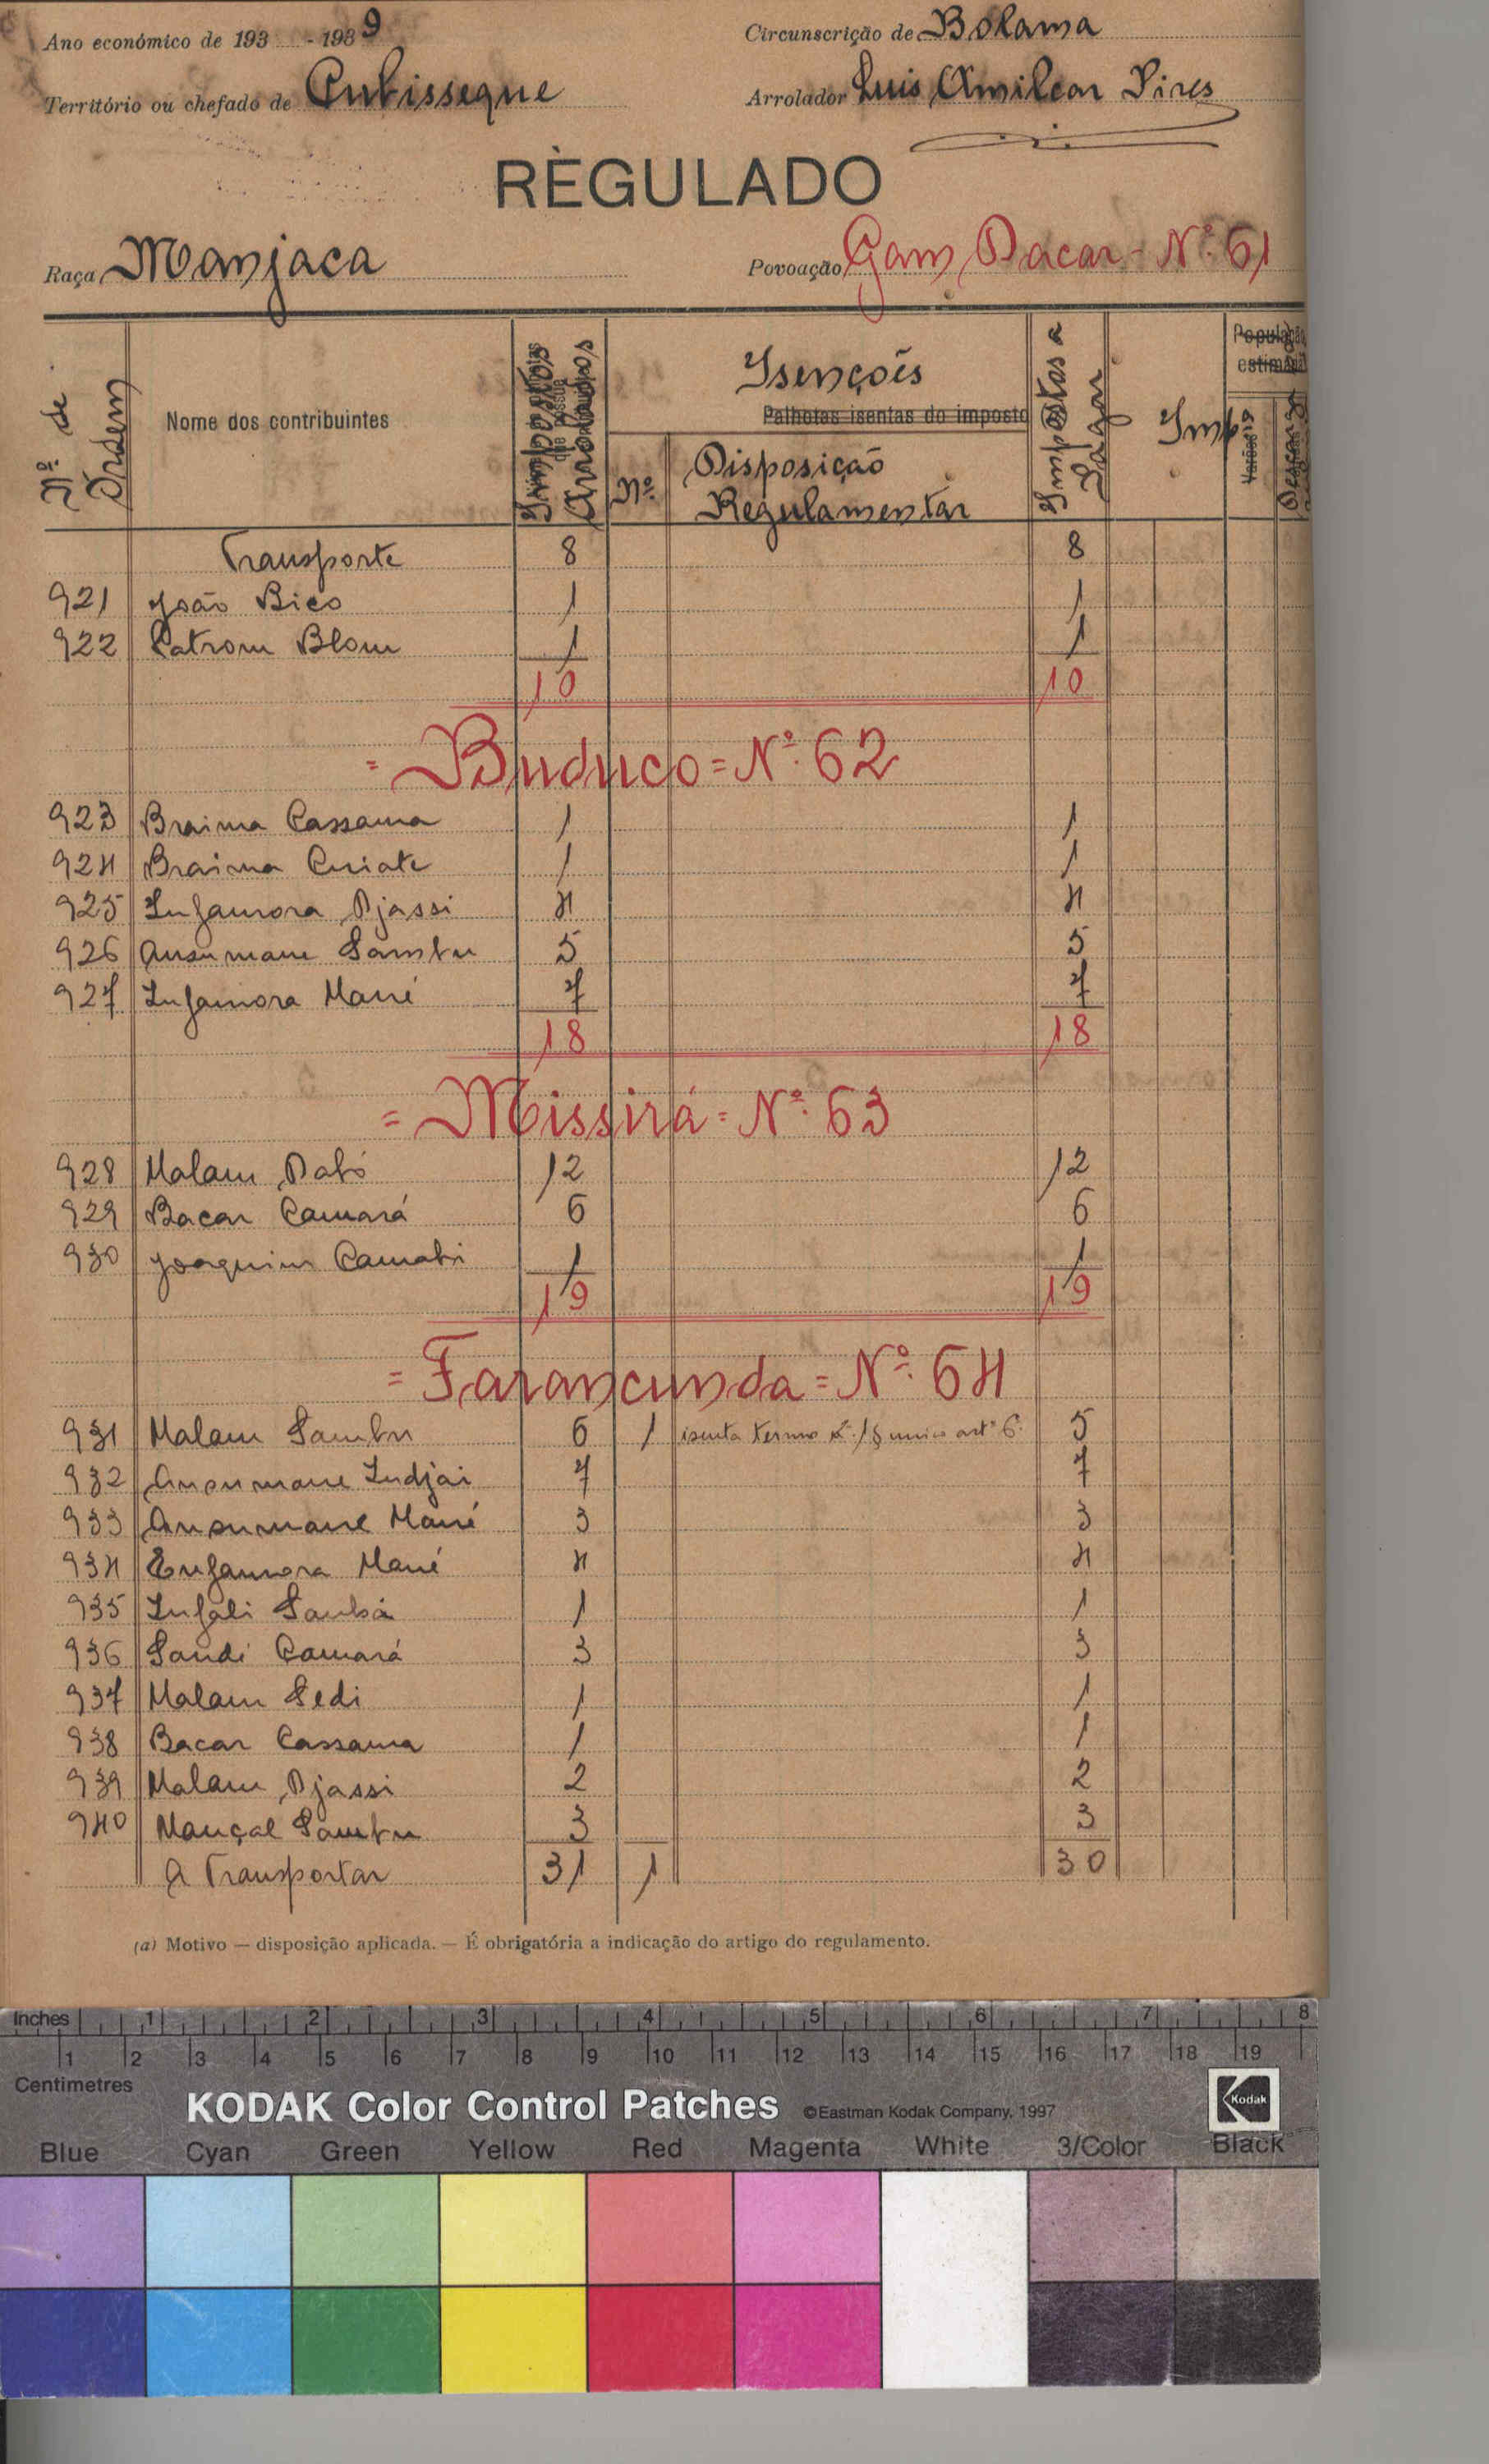 Ano económico de 193 - 1939
Circunscrição de Bolama
Território ou chefado de Cubisseque
Arrolador Luis Amilcar Pires
RÈGULADO
Raça Manjaca
Povoação Gam Dacar - Nº. 61
Nº. de Ordem
Nome dos contribuintes
Impostos Arrolados
Isençoēs
Palhotas isentas do imposto
Nº.
Disposição Regulamentar
Impostos a Pagar
Imp
População estimada
Varões
Descarga
Transporte 8 8
921 João Bico 1 1
922 Patrom Blom 1 1
10 10
= Buduco = Nº. 62
923 Braima Cassama 1 1
924 Braima Curiate 1 1
925 Infamora Djassi 4 4
926 Ansumane Sambu 5 5
927 Infamora Mané 7 7
18 18
= Missirá = Nº. 63
928 Malam Dabó 12 12
929 Bacar Camará 6 6
930 Joaquim Camabi 1 1
19 19
= Farancunda = Nº. 64
931 Malam Sambu 6 1 isenta termo § unico artº 6 5
932 Ansumane Indjai 7 7
933 Ansumane Mané 3 3
934 Enfamora Mané 4 4
935 Infali Sambá 1 1
936 Sandi Camará 3 3
937 Malam Sedi 1 1
938 Bacar Cassama 1 1
939 Malam Djassi 2 2
940 Mançal Sambu 3 3
A Transportar 31 1 30
(a) Motivo — disposição aplicada. — É obrigatória a indicação do artigo do regulamento.
Inches 1 2 3 4 5 6 7 8
1 2 3 4 5 6 7 8 9 10 11 12 13 14 15 16 17 18 19
Centimetres
KODAK Color Control Patches ©Eastman Kodak Company, 1997 Kodak
Blue Cyan Green Yellow Red Magenta White 3/Color Black